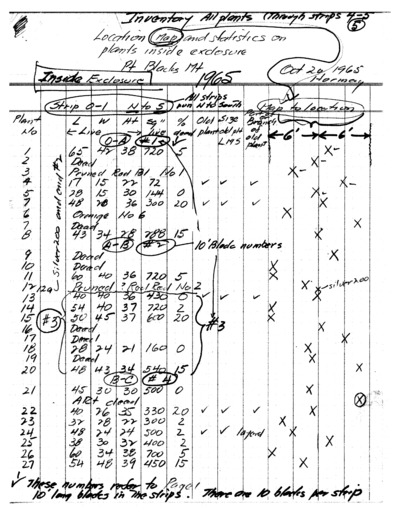 Inventory All plants (through strips 4-5
5
Location Map and statistics on
plants inside exclosure
Pt Blacks Mt
Oct 20, 1965
Hormay
Inside Exclosure 1965
Strip 0-1 N to S All strips run N to South Map to Location
Plant No L W Ht Sq" % dead Old plant Size old pt 1965
← Live → live
0-A #1 ← 6' → ← 6' →
1 65 42 38 720 5
2 Dead
3 Pruned Rod Bl No 1
4 17 15 22 72 ✓ ✓ ✓
5 28 15 30 144 0
7 48 28 36 300 20 ✓ ✓ ✓
6 Orange No 6
7 Dead
8 43 34 28 788 15
A-B #2 10' Blade numbers
9 Dead
10 Dead
11 60 40 36 720 5
12 12a Pruned ? Rod Red No 2 silver 200
13 40 40 36 430 0 ✓ ✓ ✓
14 54 40 37 720 2
15 50 45 37 600 20
#3 #3
16 Dead
17 Dead
18 28 24 21 160 0
19 Dead
20 48 43 34 540 15
B-C #4
21 45 30 30 500 0
ARt dead
22 40 26 35 330 20 ✓ ✓
23 32 28 22 300 2
24 48 24 24 500 2 ✓ ✓ layered
25 38 30 32 400 2
26 60 34 38 700 5
27 54 48 39 450 15
✓ These numbers refer to Page 1
10' long blades in the strips. There are 10 blades per strip